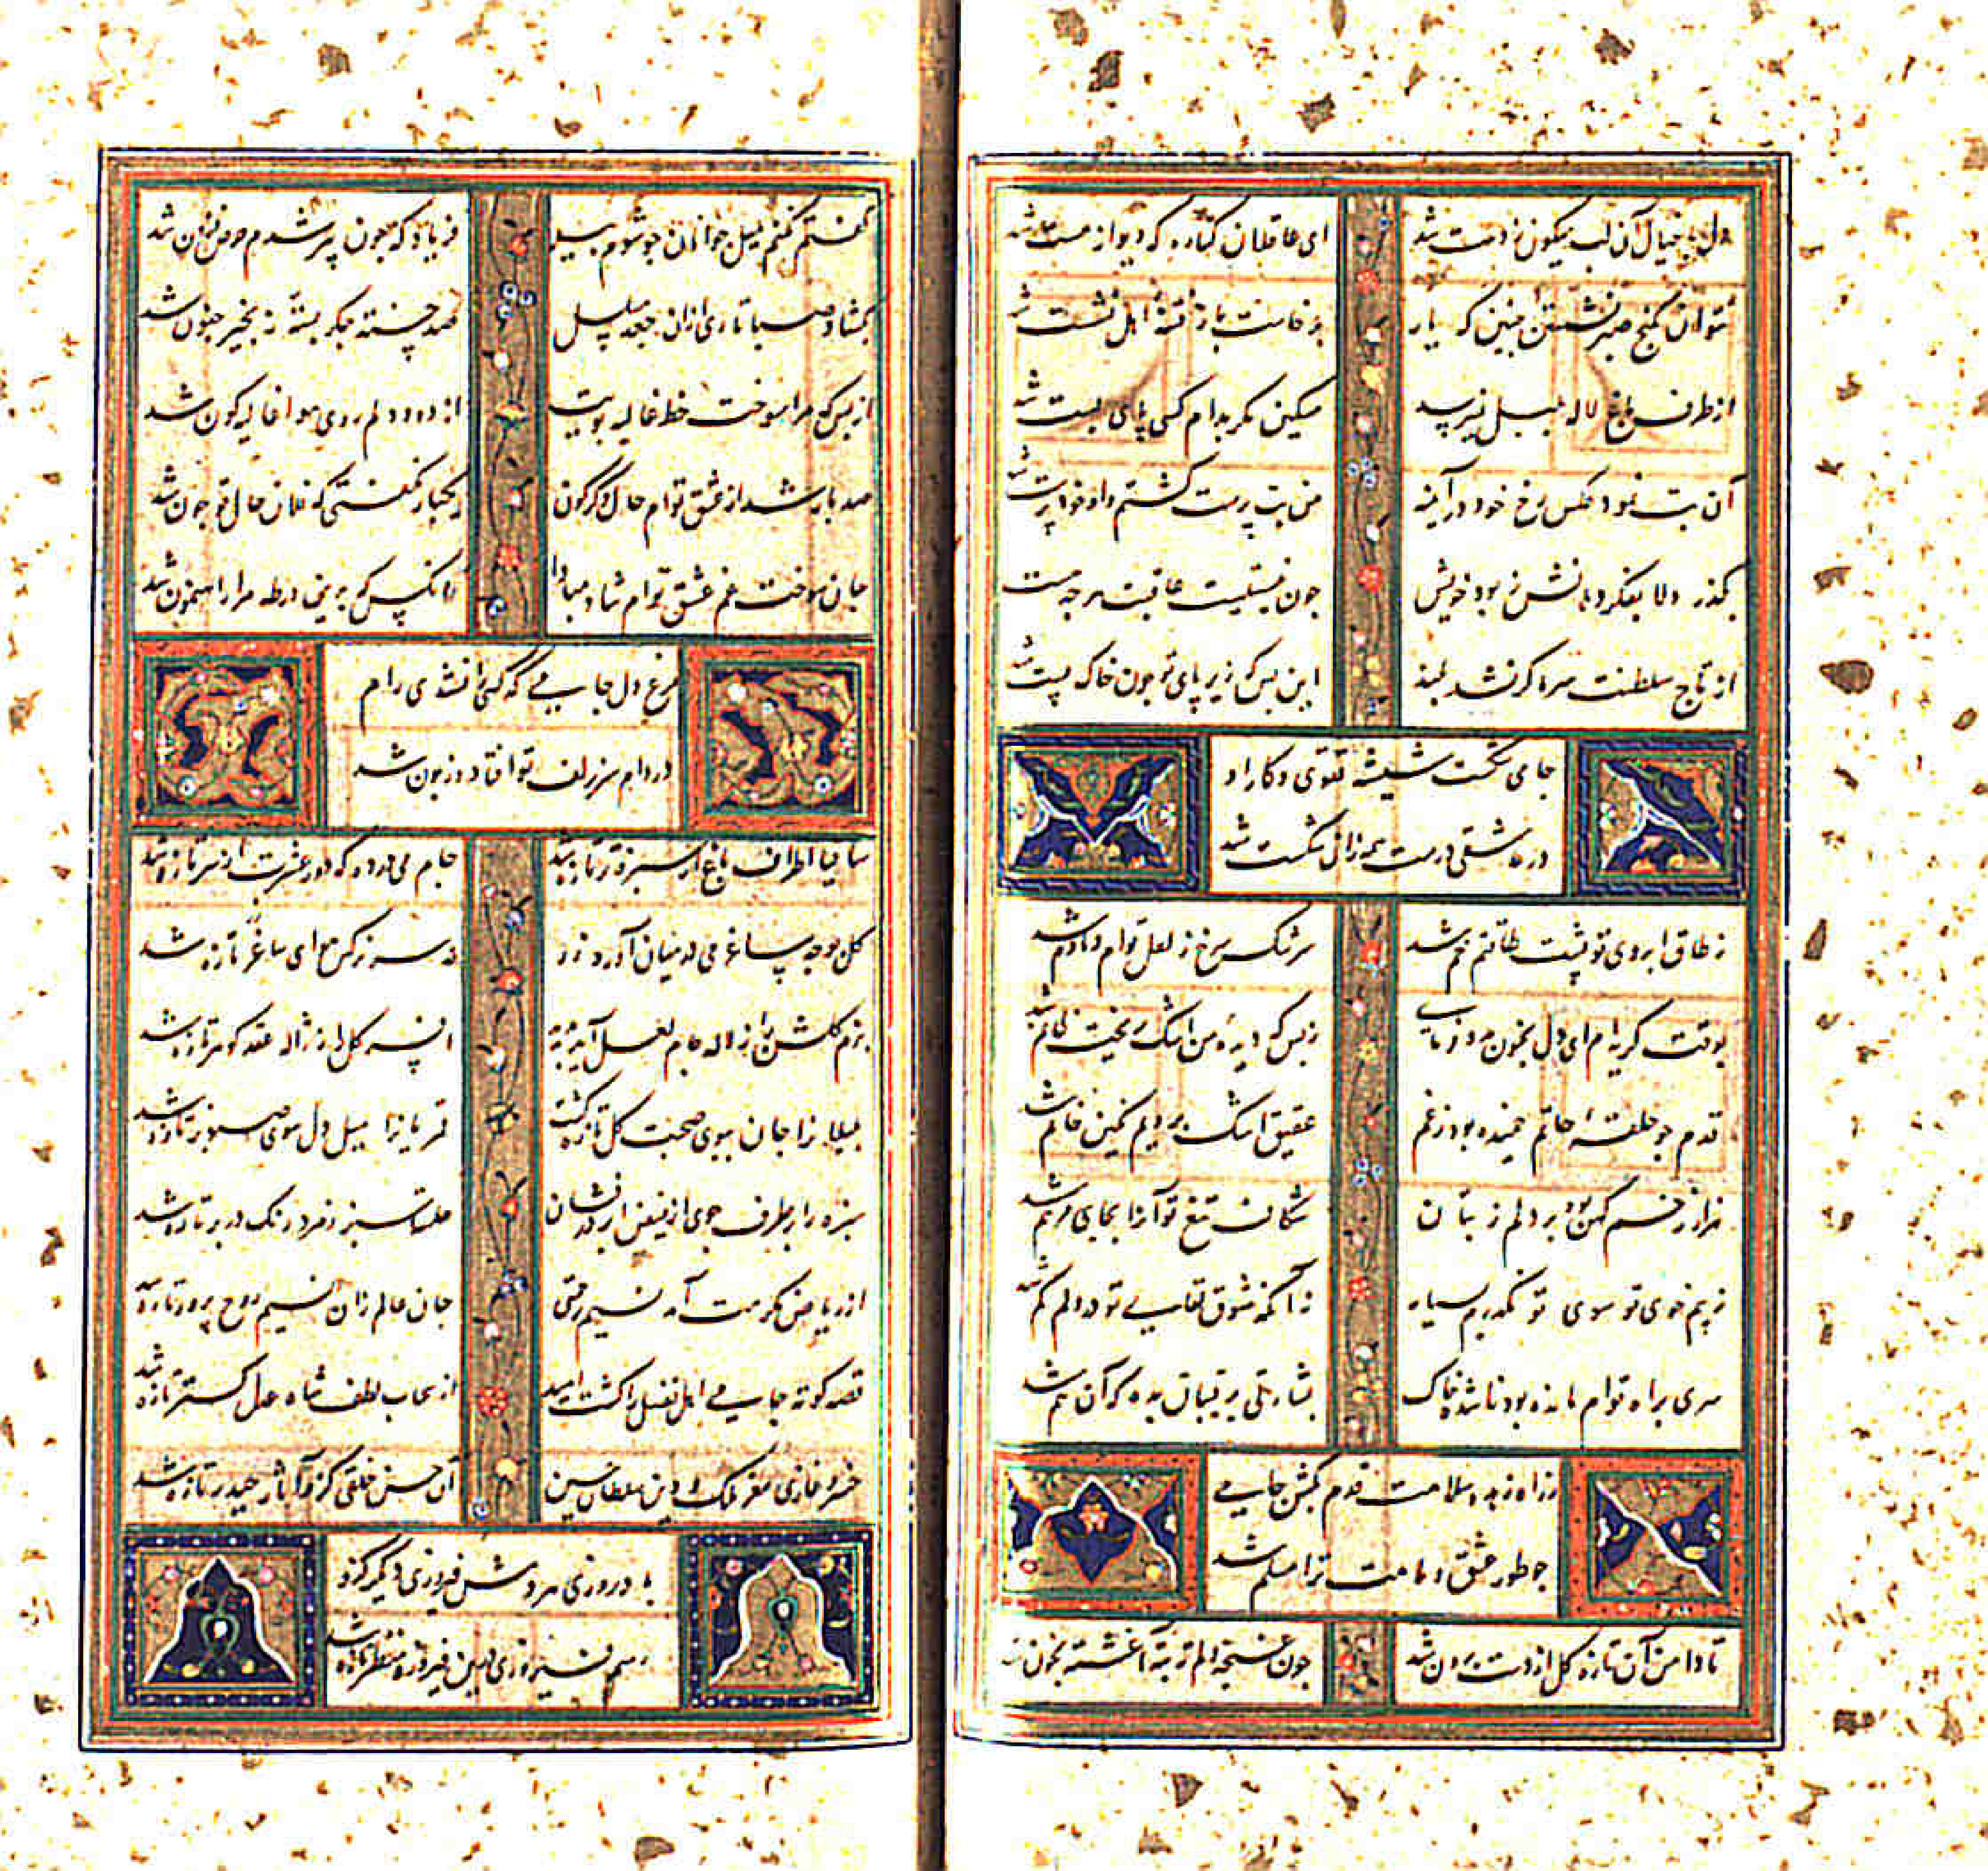 دل با خیال آن لب میکون ز دست شد ای عاقلان کناره که دیوانه مست شد
نتوان بکنج صبر نشستن چنین که یار برخاست باز و فتنهٔ اهل نشست شد
از طرف باغ لاله بلبل نمیپرد مسکین مکر بدام کسی پای بست شد
آن بت نمود عکس رخ خود در آینه من بت پرست کشتم و او خود پرست شد
بگذر دلا بفکر دهانش ز بود خویش چون نیستیست عاقبت هرجه هست شد
از تاج سلطنت سرم ار نشد بلند این بس که زیر پای تو چون خاک پست شد
جامی شکست شیشه تقوی و کار او
در عاشقی درست همه زان شکست شد
ز طاق ابروی تو پشت طاقتم خم شد سرشک سرخ ز لعل توام دمادم شد
بوقت کریه ام ای دل بخون مدد ز بس که دیده من اشک ریخت شد
قدم جو حلقهٔ خاتم خمیده بود ز غم عقیق اشک برویم نکین خاتم شد
هزار زخم کهن بود بر دلم ز بتان شکاف تیغ تو آنرا بجای مرهم شد
ز بیم خوی تو سوی تو نکذرم بسیار نه آنکه شوق لقای تو در دلم کم شد
سری براه توام مانده بود تا شد خاک بشارتی برقیبان بده که آن هم شد
ز راه زهد و سلامت قدم بکش جامی
جو طور عشق و ملامت ترا مسلم شد
تا دامن آن تازه کل از دست برون شد جون غنچه دلم ته بته آغشته بخون شد
کفتم نکنم میل جوانان جو شوم پیر فریاد که جون پیر شدم حرص فزون شد
بکشاد صبا تاری ازان جعد مسلسل صد خسته جکر بسته زنجیر جنون شد
از بس که مرا سوخت خط غالیه بویت از دود دلم روی هوا غالیه کون شد
صد بار شد از عشق توام حال دکرکون یکبار نکفتی که فلان حال تو جون شد
جان سوخت غم عشق توام شاد مبادا آنکس که برین ورطه مرا راهنمون شد
مرغ دل جامی که کس را نشدی رام
در دام سر زلف تو افتاد و زبون شد
ساقیا اطراف باغ از سبزه تر تازه شد جام می در ده که دور عشرت از سر تازه شد
کل جو جه ساغر می در میان آورد زر در سر نرکس هوای ساغر زر تازه شد
بزم کلشن را ز لاله جام لعل آمد پدید افسر کل را ز ژاله عقد کوهر تازه شد
بلبلانرا جان ببوی صحبت کل تازه کشت قمریانرا میل دل سوی صنوبر تازه شد
سبزه را بر طرف جوی از فیض ابر درفشان خلعت سبز زمرد رنک در بر تازه شد
از ریاض مکرمت آمد نسیم رحمتی جان عالم زان نسیم روح پرور تازه شد
قصه کوته جامی اهل فضل را کشت امید از سحاب لطف شاه عدل کستر تازه شد
خسرو غازی معز ملک و دین سلطان حسین آن حسن خلقی کزو آثار حیدر تازه شد
باد روزی هر دمش فیروزی دیکر کزو
رسم فیروزی درین فیروزه منظر تازه شد